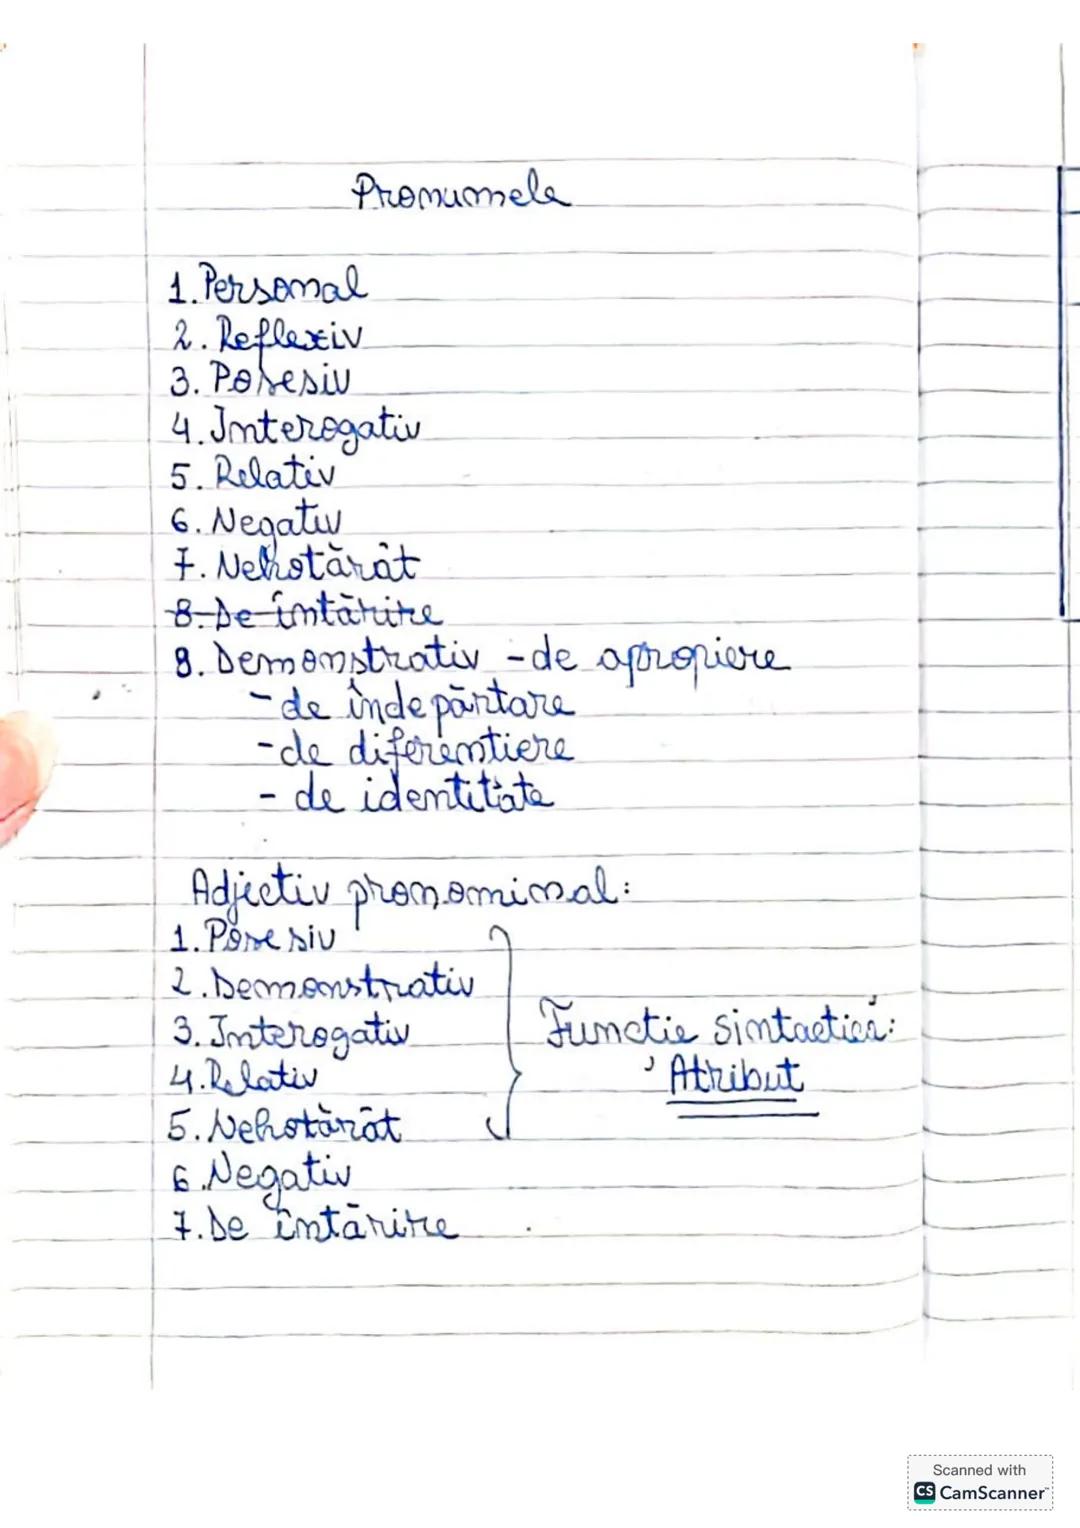 Pronumele
1. Personal
2. Reflexiv
3. Posesiv
4. Interogativ
5. Relativ
6. Negativ
7. Nehotărât
8. De întărire
8. Demonstrativ - de apropiere
- de îndepărtare
- de diferentiere
- de identitate
Adjectiv pronominal:
1. Posesiv
2. Demonstrativ
3. Interogativ
4. Relativ
5. Nehotărât
6. Negativ
7. De întărire
Funcție sintactică:
Atribut
Scanned with
CS CamScanner